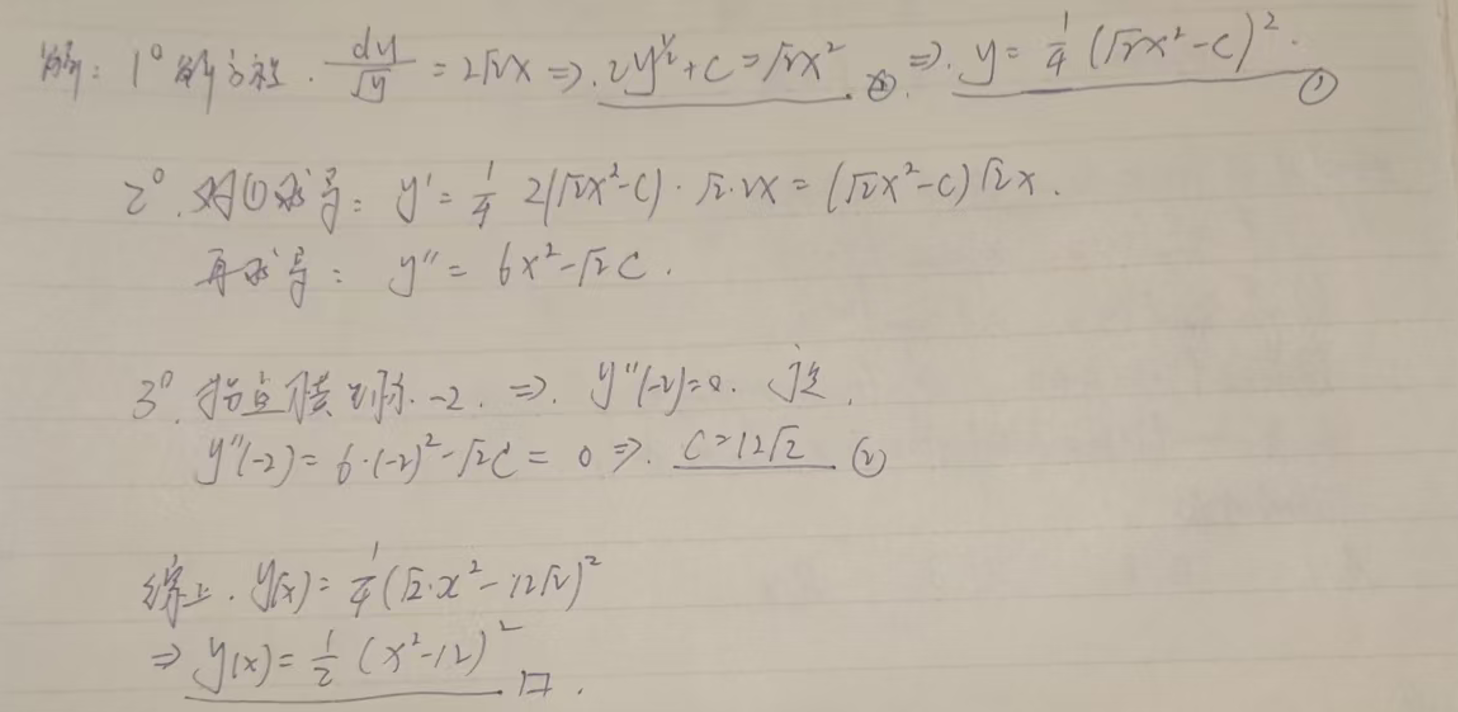 解: 1° 解方程. dy/√y = 2√2x ⇒. 2y^{1/2}+C=√2x² ⊛. ⇒. y = 1/4 (√2x²-C)². ①
2°. 对①求导: y' = 1/4 2(√2x²-C)·√2·2x = (√2x²-C)√2x.
再求导: y'' = 6x²-√2C.
3°. 拐点横坐标-2. ⇒. y''(-2)=0.
y''(-2) = 6·(-2)²-√2C = 0 ⇒. C=12√2 ②
综上. y(x) = 1/4 (√2·x²-12√2)²
⇒ y(x) = 1/2 (x²-12)² □.